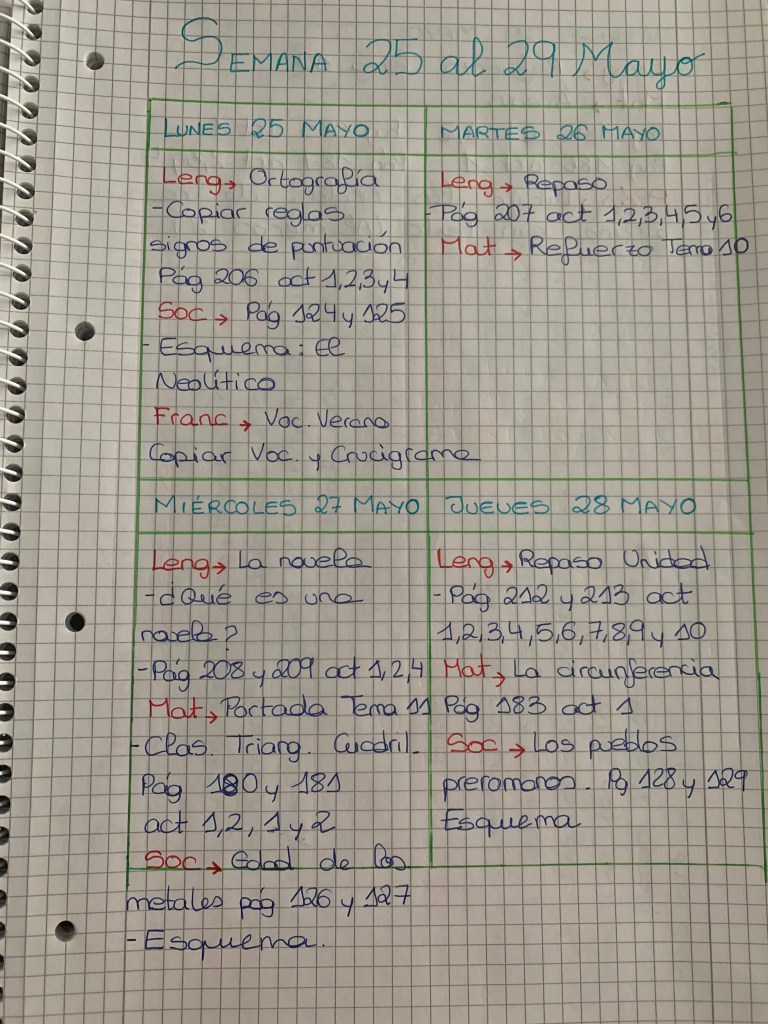 SEMANA 25 al 29 Mayo
LUNES 25 MAYO
Leng → Ortografía
-Copiar reglas
signos de puntuación
Pág 206 act 1,2,3 y 4
Soc → Pág 124 y 125
- Esquema: El
Neolítico
Franc → Voc. Verano
Copiar Voc. y Crucigrama
MARTES 26 MAYO
Leng → Repaso
-Pág 207 act 1,2,3,4,5 y 6
Mat → Refuerzo Tema 10
MIÉRCOLES 27 MAYO
Leng → La novela
- ¿Qué es una
novela?
-Pág 208 y 209 act 1,2,4
Mat → Portada Tema 11
-Clas. Triang. Cuadril.
Pág 180 y 181
act 1,2, 1 y 2
Soc → Edad de los
metales pág 126 y 127
-Esquema.
JUEVES 28 MAYO
Leng → Repaso Unidad
-Pág 212 y 213 act
1,2,3,4,5,6,7,8,9 y 10
Mat → La circunferencia
Pág 183 act 1
Soc → Los pueblos
preromanos. Pg 128 y 129
Esquema